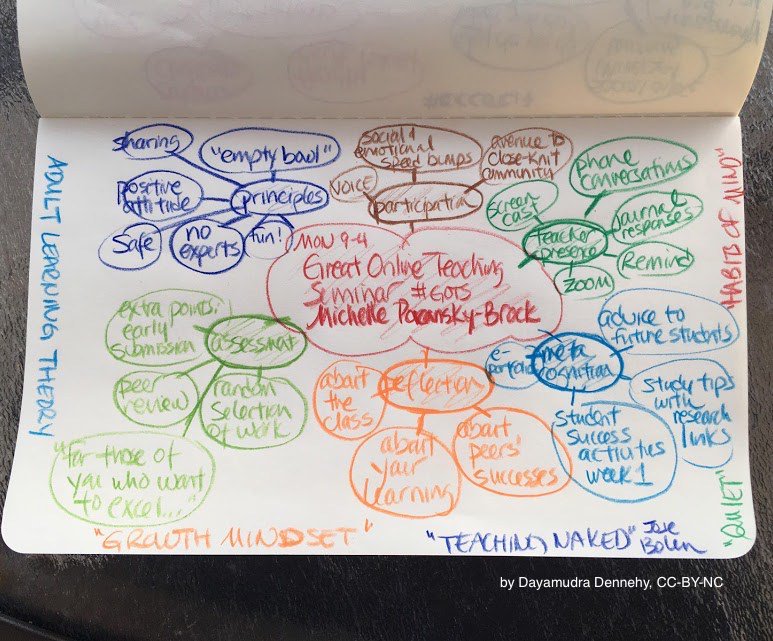 sharing
"empty bowl"
positive
attitude
principles
safe
no
experts
fun!
social &
emotional
speed bumps
avenue to
close-knit
community
voice
participation
phone
conversations
screen
cast
teacher
presence
journal
responses
Remind
ZOOM
MON 9-4
Great Online Teaching
Seminar #GOTS
Michelle Pacansky-Brock
extra points:
early
submission
assessment
peer
review
random
selection
of work
"for those of
you who want
to excel..."
reflection
about
the
class
about
your
learning
about
peers'
successes
e-
portfolio
meta
cognition
advice to
future students
study tips
with
research
links
student
success
activities
week 1
ADULT LEARNING THEORY
HABITS OF MIND"
"QUIET"
"GROWTH MINDSET"
"TEACHING NAKED" Jose
Bolen
by Dayamudra Dennehy, CC-BY-NC